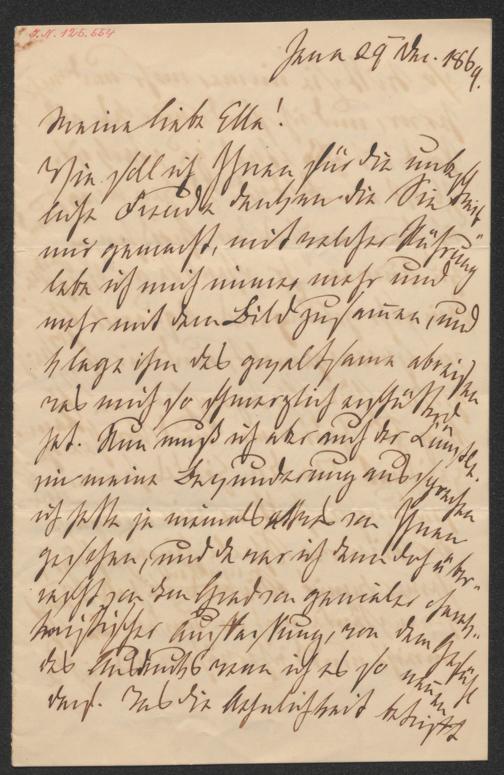 I.N. 125.554
Jena 29 Dec. 1869.
Meine liebe Ella!
Wie soll ich Ihnen für die unbeschreib-
liche Freude danken die Sie
mir gemacht, mit welcher Rührung
lebe ich mich immer mehr und
mehr mit dem Bild zusammen, und
klage ihm das gewaltsame abreisen
was mich so schmerzlich erschüttert
hat. Nun muß ich aber auch der Künstle-
rin meine Bewunderung aussprechen
ich hatte ja niemals etwas von Ihnen
gesehen, und da war ich denn doch über-
rascht von dem Grad von genialer charak-
teristischer Auffassung, von dem Gefühl
des Ausdrucks wenn ich es so nennen
darf. Was die Aehnlichkeit betrifft